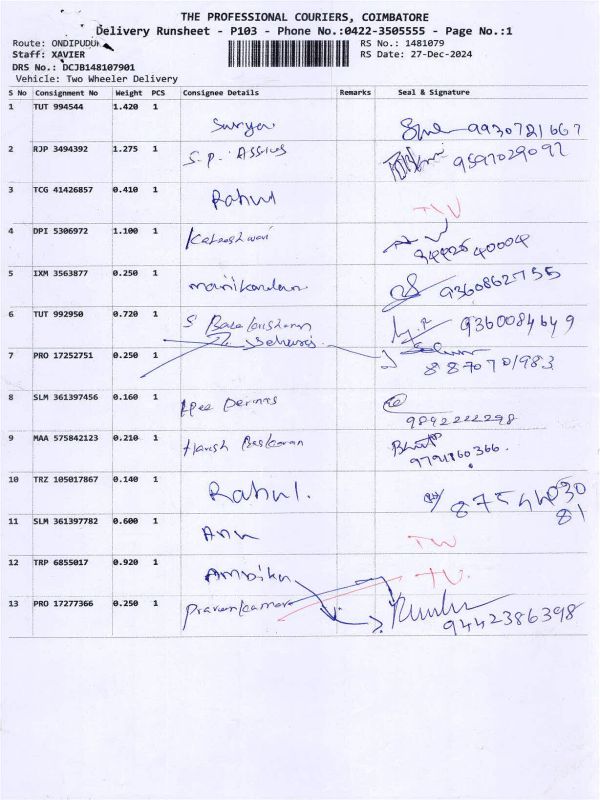 THE PROFESSIONAL COURIERS, COIMBATORE
Delivery Runsheet - P103 - Phone No.:0422-3505555 - Page No.:1
Route: ONDIPUDUR
RS No.: 1481079
Staff: XAVIER
RS Date: 27-Dec-2024
DRS No.: DCJB148107901
Vehicle: Two Wheeler Delivery
S No Consignment No Weight PCS Consignee Details Remarks Seal & Signature
1 TUT 994544 1.420 1
Surya 9930721667
2 RJP 3494392 1.275 1
S.P. 9597029092
3 TCG 41426857 0.410 1
Rahul TW
4 DPI 5306972 1.100 1
5 IXM 3563877 0.250 1
manikandan 9360862755
6 TUT 992950 0.720 1
S 9360084649
7 PRO 17252751 0.250 1
8870701983
8 SLM 361397456 0.160 1
9842222298
9 MAA 575842123 0.210 1
Harish Baskaran
9791160366.
10 TRZ 105017867 0.140 1
Rahul. 8754403081
11 SLM 361397782 0.600 1
Anu TW
12 TRP 6855017 0.920 1
Ambika TW
13 PRO 17277366 0.250 1
Pravenkumar 9442386398